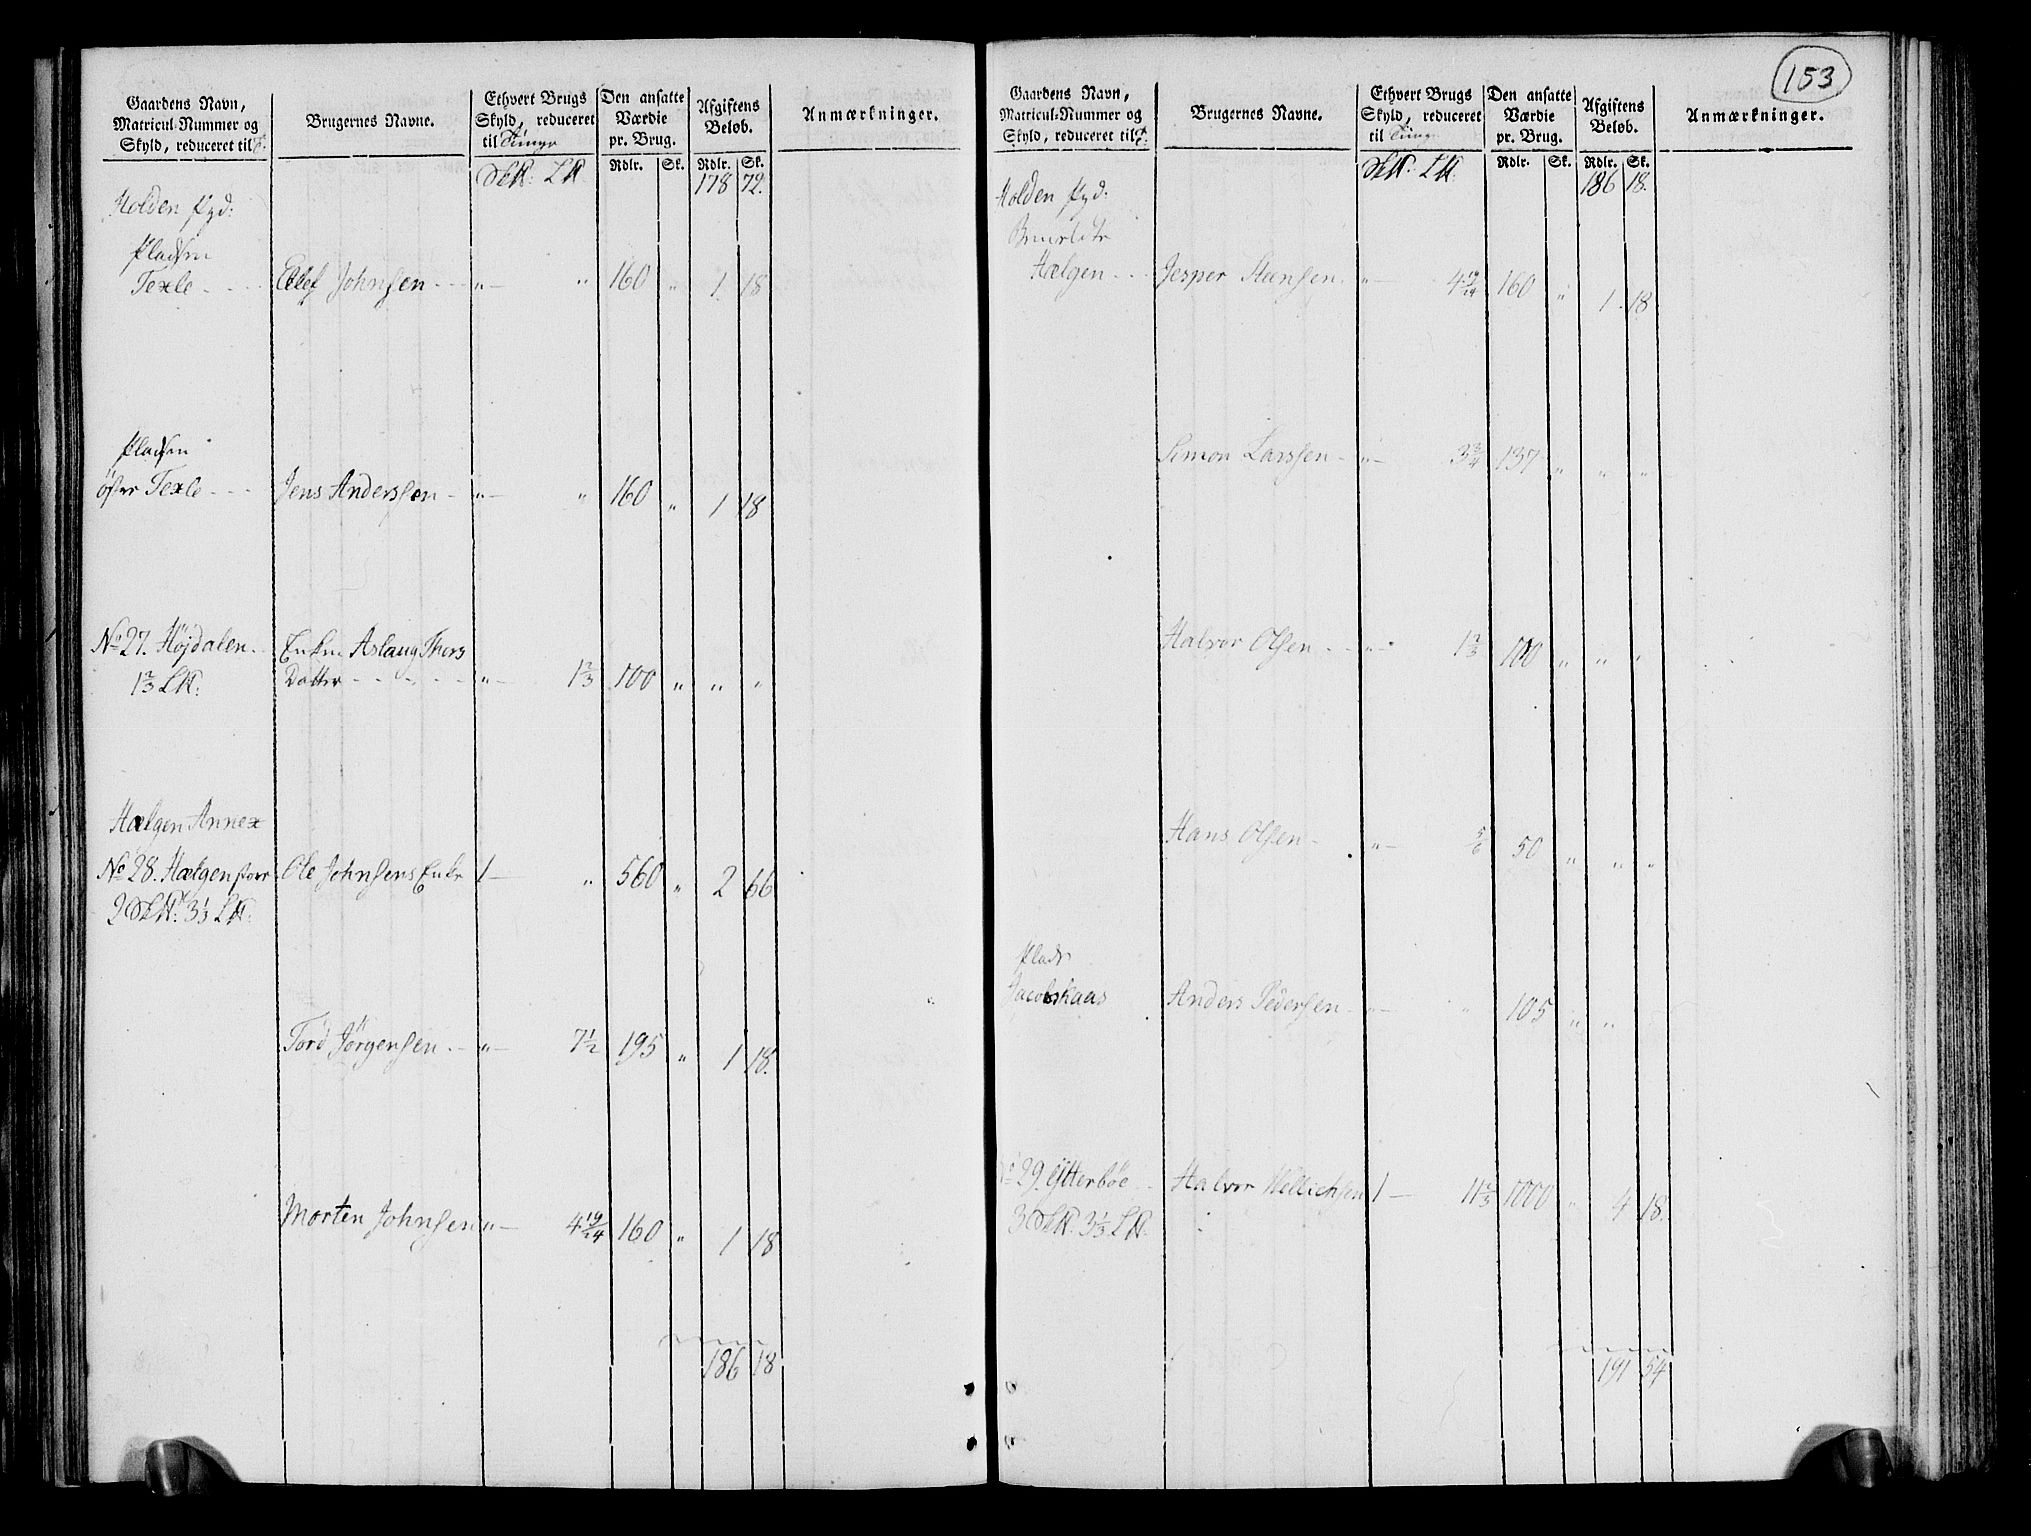 153
Gaardens Navn, Matricul-Nummer og Skyld, reduceret til T.
Brugernes Navne.
Ethvert Brugs Skyld, reduceret til Tunge
Den ansatte Værdie pr. Brug.
Afgiftens Beløb.
Anmærkninger.
Rdlr. Sk. Rdlr. Sk.
S℔: L℔ 178 72.
Holden Pgd:
Pladsen
Texle - - - Ellef Johnsen - - - " — " 160 " 1. 18
Pladsen
öfre Texle - - - Jens Anderssen - " — " 160 " 1 18
No 27. Højdalen - Enken Aslaug Thors
1 2/3 L℔: Datter - - - - - " — 1 2/3 100 " " "
Hælgen Annex
No 28. Hælgen store Ole Johnsens Enke 1 — " 560 " 2 66.
2 S℔: 3 1/3 L℔:
Tord Jörgensen - - " — 7 1/2 195 " 1 18.
Morten Johnsen " — 4 19/24 160 " 1 18
186 18
Gaardens Navn, Matricul-Nummer og Skyld, reduceret til T:
Brugernes Navne.
Ethvert Brugs Skyld, reduceret til Tunge
Den ansatte Værdie pr. Brug.
Afgiftens Beløb.
Anmærkninger.
Rdlr. Sk. Rdlr. Sk.
S℔: L℔. 186 18.
Holden Pgd:
Hælgen - - - Jesper Steensen - " — 4 19/24 160 " 1. 18.
Simon Larssen - " — 3 3/4 137 " " "
Halvor Olsen - - - " — 1 2/3 100 " " "
Hans Olsen - " — 5/6 50 " " "
Plads
Jacobskaas Anders Pedersen - " — " 105 " "
No 29. Ytterböe - - Halvor Kittilsen 1 — 11 2/3 1000 " 4 18.
3 S℔. 3 1/3 L℔.
191 54